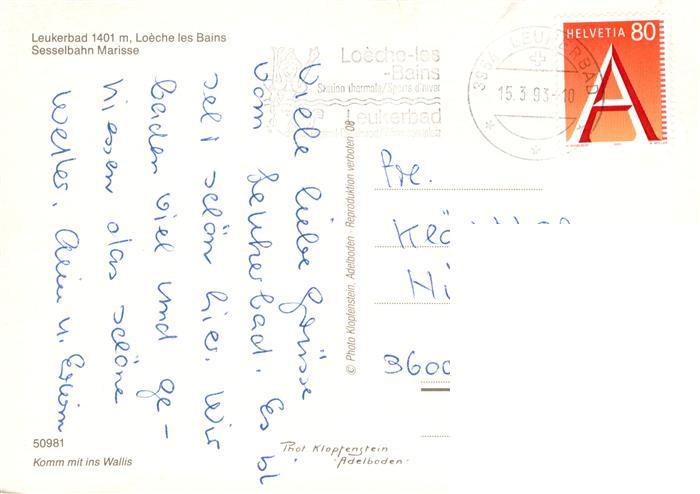 Leukerbad 1401 m, Loèche les Bains
Sesselbahn Marisse
Loèche-les
-Bains
Station thermale/Sports d'hiver
Leukerbad
3954 LEUKERBAD
15.3.93-10
HELVETIA 80
A
Viele liebe Grüsse
vom Leukerbad. Es ist
sehr schön hier. Wir
baden viel und ge-
niessen das schöne
Wetter.
Fre.
Klö
Hi
3600
© Photo Klopfenstein, Adelboden · Reproduktion verboten 08
50981
Komm mit ins Wallis
Phot Klopfenstein
- Adelboden -